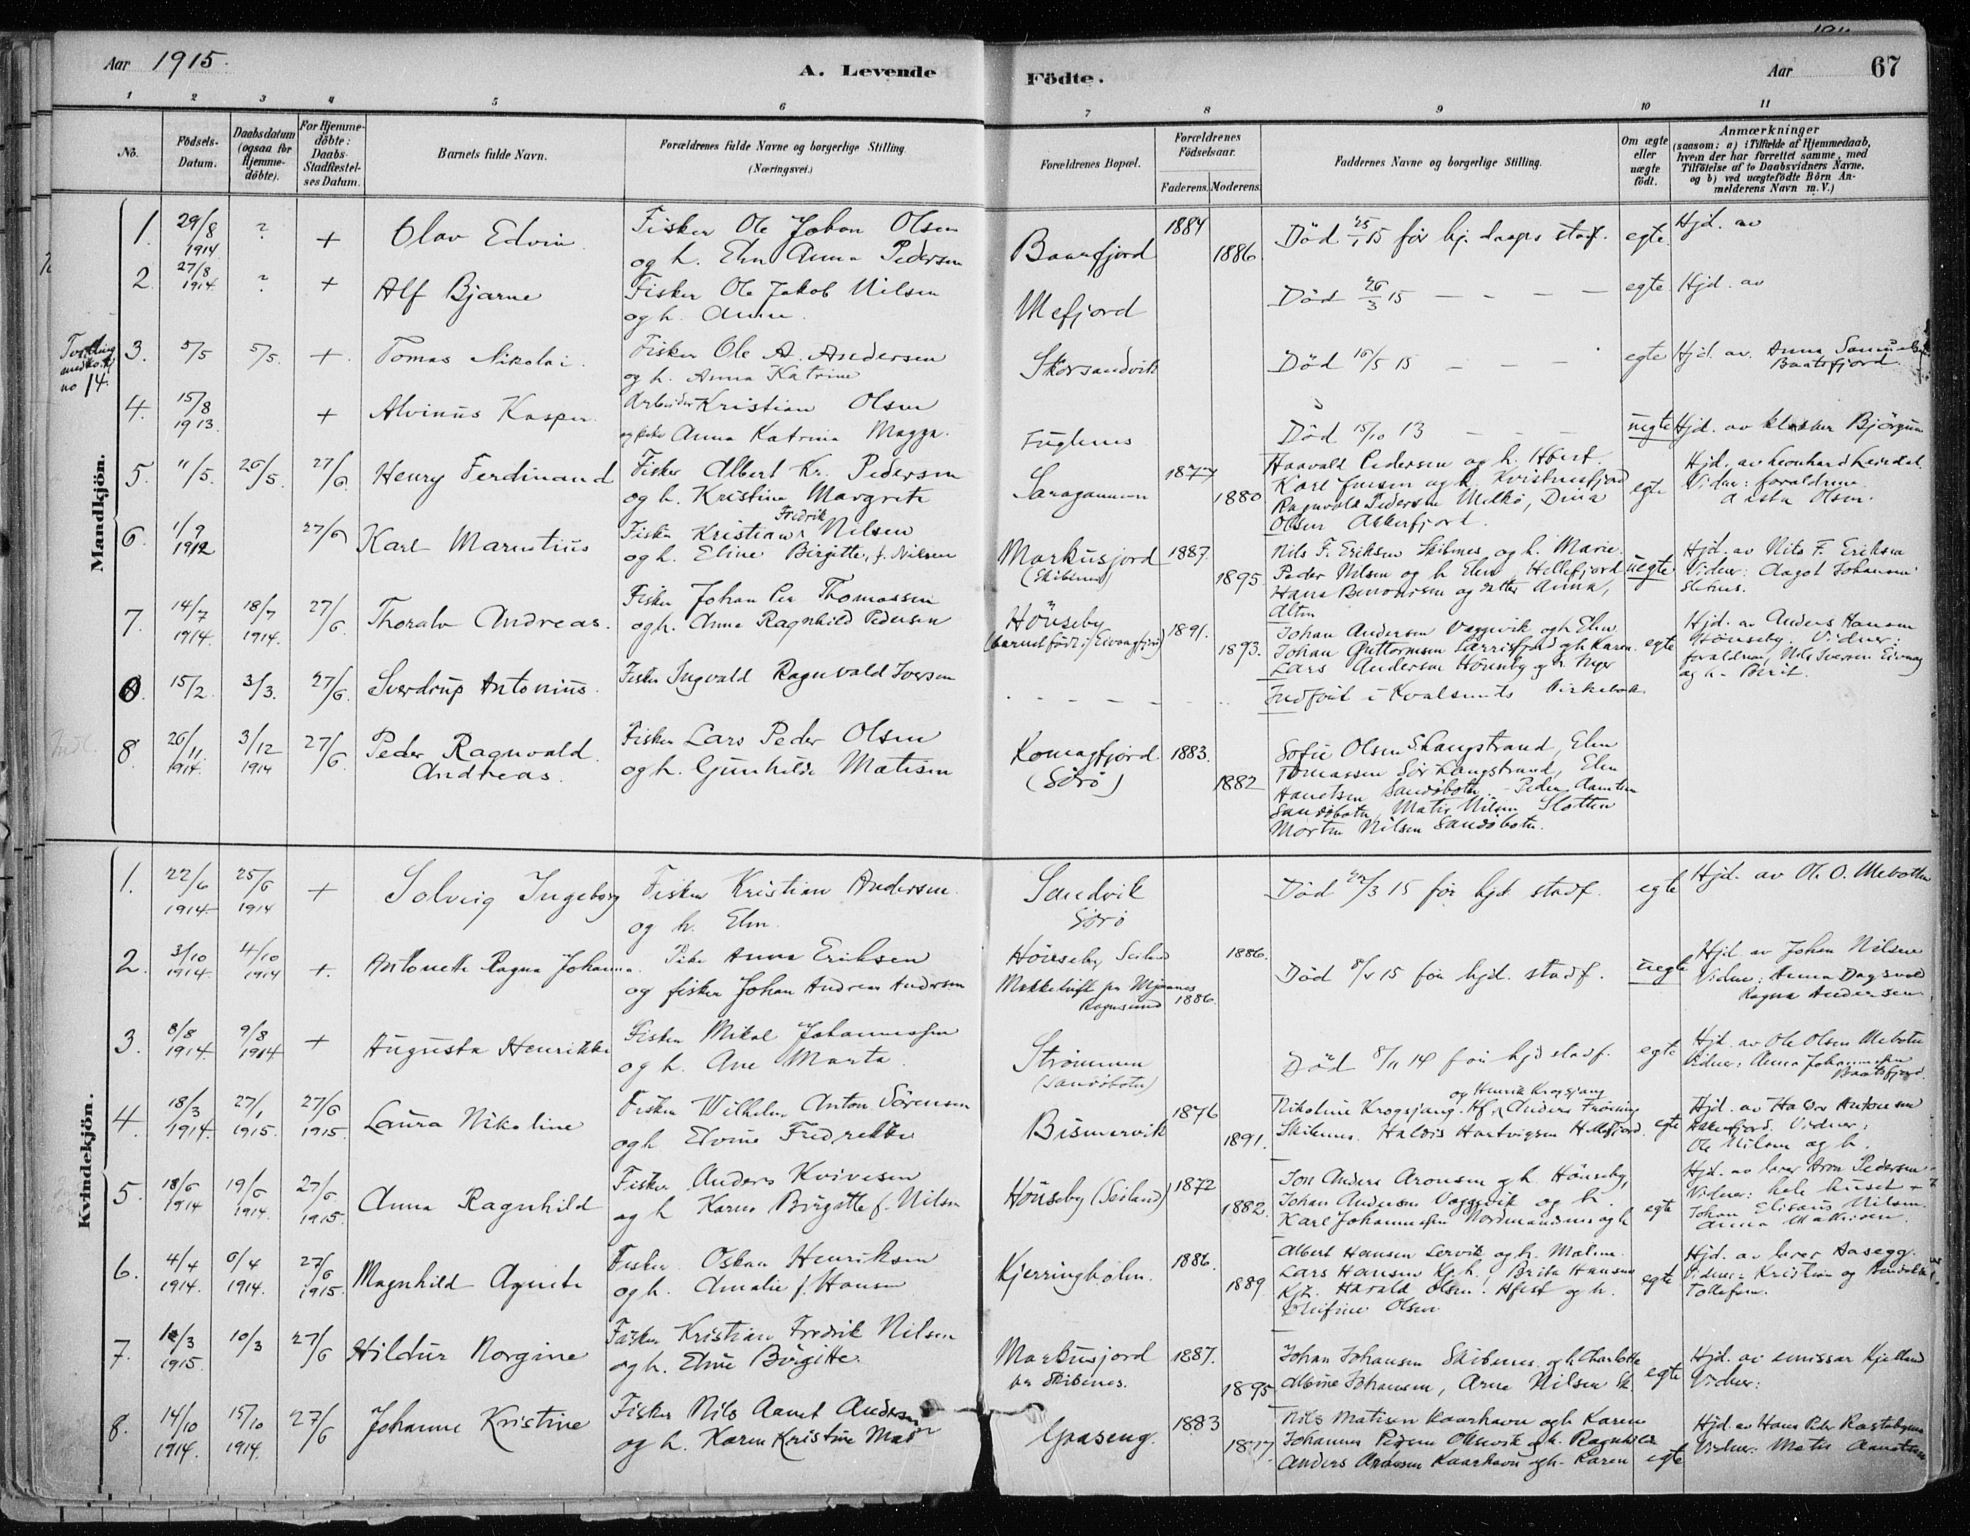 Aar 1915.
A. Levende Födte.
Aar 67
1 2 3 4 5 6 7 8 9 10 11
No.
Födsels-Datum.
Daabsdatum (ogsaa for Hjemme-döbte).
For Hjemme-döbte: Daabs-Stadfæstel-ses Datum.
Barnets fulde Navn.
Forældrenes fulde Navne og borgerlige Stilling.
(Næringsvei.)
Forældrenes Bopæl.
Forældrenes Födselsaar.
Faderens. Moderens.
Faddernes Navne og borgerlige Stilling.
Om ægte eller uægte födt.
Anmærkninger
(saasom: a) i Tilfælde af Hjemmedaab,
hvem der har forrettet samme, med
Tilföielse af to Daabsvidners Navne,
og b) ved uægtefödte Börn An-
melderens Navn m. V.)
Mandkjön.
1. 29/8 1914 ? + Olav Edvin Fisker Ole Johan Olsen
og h. Elen Anna Pedersen Baarfjord 1884 1886. Död 25/1 15 før hj. daaps stadf. egte. Hjd. av
2. 27/8 1914. ? + Alf Bjarne Fisker Ole Jakob Nilsen
og h. Anna. Mefjord Död 26/3 15 — — — — egte. Hjd. av
no 14.
3. 5/5 5/5. + Tomas Nikolai. Fisker Ole A. Andersen
og h. Anna Katrine Skorsandvik Död 16/5 15 — — — egte Hjd. av. Anna
Baatsfjord
4. 15/8 1913. + Alvinus Kasper. Arbeider Kristian Olsen
og pike Anna Katrina Magga. Fuglenes Död 15/10 13 — — — uegte Hjd. av klokker Björgum
5. 11/5. 26/5. 27/6. Henry Ferdinand Fisker Albert Kr. Pedersen
og h. Kristine Margrete 1877 1880 Haavald Pedersen og h.
Karl Jensen og h.
Ragnvald Pedersen Dina
Olsen Akkerfjord. egte Hjd. av Leonhard
Vidner: foraldrene
Olsen.
6. 1/9 1912 27/6 Karl Marentius Fisker Kristian Fredrik Nilsen
og h. Eline Birgitte, f. Nilsen Markusjord
(Skibenes) 1887. 1895 Nils F. Eriksen Skibnes og h. Marie.
Peder Nilsen og h. Elen Hellefjord
Hans og datter Anna,
Alten uegte Hjd. av Nils F. Eriksen
Vidner: Aagot Johansen
7. 14/7 1914. 18/7 1914. 27/6. Thoralv Andreas. Fisker Johan Per Thomassen
og h. Anna Ragnhild Pedersen Hönseby 1891. 1893. Johan Andersen Vaggevik og h. Elen
Johan Guttormsen og h. Karen.
Lars Andersen Hönseby og h. Inger egte Hjd. av Anders Hansen
Hönseby. Vidner:
foraldrene, Nils Iversen
og h. Berit.
0. 15/2. 3/3. 27/6. Sverdrup Antonius. Fisker Ingvald Ragnvald Iversen — — — — Indfört i Kvalsunds Kirkebok
8. 26/11 1914. 3/12 1914 27/6. Peder Ragnvald
Andreas. Fisker Lars Peder Olsen
og h. Gunhilde Matisen Komagfjord
(Sörö) 1883. 1882 Sofie Olsen S. Langstrand, Elen
Tomassen Sör Langstrand, Elen
Sandöbotn. Peder
Sandöbotn, Matis Nilsen Slotten
Morten Nilsen Sandöbotn.
Kvindekjön.
1. 22/6 1914. 25/6 1914 + Solveig Ingeborg Fisker Kristian Andersen.
og h. Elen. Sandvik
Sörö Död 22/3 15 før hjd. stadf. egte Hjd. av Ole O. Mebotten
2. 3/10 1914. 4/10 1914 +. Antonette Ragna Johanna. Pike Anna Eriksen
og fisker Johan Andreas Andersen Hönseby Seiland
Rognsund 1886. 1886. Död 8/4 15 før hjd. stadf. uegte Hjd av Johan Nilsen
Vidner: Anna Dagsvold
Ragna Andersen
3. 8/8 1914. 9/8 1914 + Augusta Henrikke Fisker Mikal Johannessen
og h. Ane Marta. Strömmen
(Sandöbotn) Död 8/11 14 før hjd stadf. egte Hjd. av Ole Olsen Mebotn
Vidner: Anna Johannessen
Baatsfjord
4. 18/3 1914. 27/1 1915. 27/6 1915. Laura Nikoline Fisker Wilhelm Anton Sörensen
og h Elvine Fredrikke Bismervik 1876 1891. og Henrik Krogsjang
Nikoline Krogsjang. Hf., Anders
Skibenes. Haldis Hartvigsen Hellefjord. egte Hjd. av Antonsen
Vidner:
Ole Nilsen og h.
5. 18/6 1914 19/6 1914. 27/6 1915. Anna Ragnhild Fisker Anders Kvivesen
og h Karen Birgitte f. Nilsen Hönseby (Seiland) 1872 1882. Jon Anders Aronsen og h. Hönseby,
Johan Andersen Vaggevik og h.
Karl Johannessen og h egte Hjd. av lærer Aron Pedersen
Vidner: hele huset +
Johan Elisæus Nilsen.
Anna Mathisen.
6. 4/4 1914. 6/4 1914. 27/6 1915. Magnhild Agnete Fisker Oskar Henriksen
og h. Amalie f. Hansen Kjerringholm. 1886. 1889 Albert Hansen Lervik og h. Maline.
Lars Hansen Kj.h., Brita Hansen
Kjh. Harald Olsen. og h.
Olefine Olsen egte Hjd. av lærer Aasegg.
Vidner: Kristian og
Tollefsen.
7. 1/3 1915. 10/3 27/6 Hildur Norgine Fisker Kristian Fredrik Nilsen
og h. Eline Birgitte Markusjord
pr Skibenes. 1887. 1895 Johan Johansen Skibenes og h. Charlotte
Albine Johansen, Arne Nilsen Sk. egte Hjd. av emissær Kjelland
Vidner:
8. 14/10 1914. 15/10 1914. 27/6 Johanne Kristine Fisker Nils Aanet Andersen
og h. Karen Kristine Graseng. 1883 1877 Nils Matisen Kaarhavn og h Karen
Johannes Pedersen og h. Ragnhild
Anders Kaarhavn og h. Karen egte Hjd. av Hans Peder
Vidner: Matis